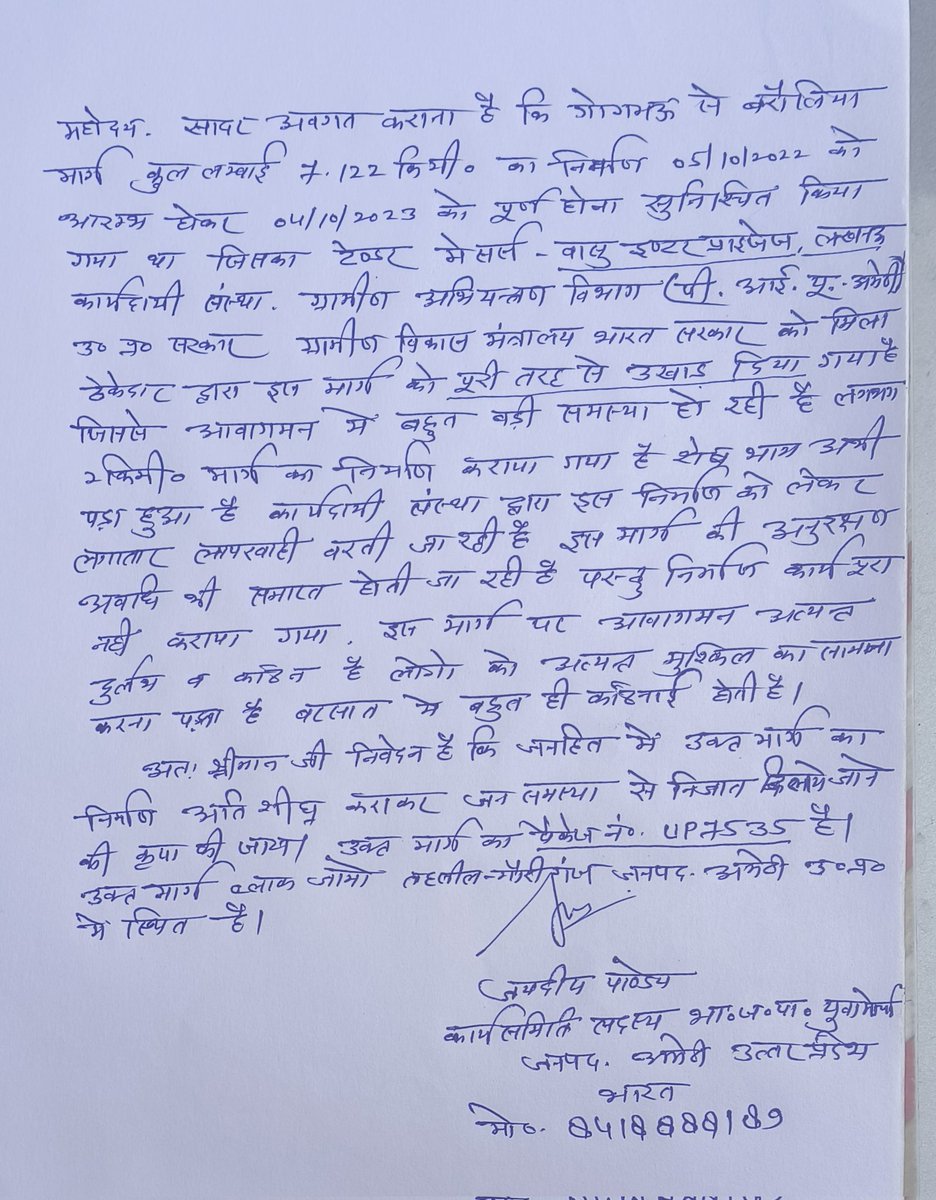 महोदय. सादर अवगत कराना है कि गोगमऊ से बरौलिया
मार्ग कुल लम्बाई 7.122 किमी० का निर्माण 05/10/2022 को
आरम्भ होकर 04/10/2023 को पूर्ण होना सुनिश्चित किया
गया था जिसका टेण्डर मेसर्स - वासु इण्टरप्राइजेज, लखनऊ
कार्यदायी संस्था. ग्रामीण अभियन्त्रण विभाग (पी. आई. यू.-अमेठी
उ० प्र० सरकार ग्रामीण विकास मंत्रालय भारत सरकार को मिला
ठेकेदार द्वारा इस मार्ग को पूरी तरह से उखाड़ दिया गया है
जिससे आवागमन में बहुत बड़ी समस्या हो रही है लगभग
2 किमी० मार्ग का निर्माण कराया गया है शेष भाग अभी
पड़ा हुआ है कार्यदायी संस्था द्वारा इस निर्माण को लेकर
लगातार लापरवाही बरती जा रही है इस मार्ग की अनुरक्षण
अवधि भी समाप्त होती जा रही है परन्तु निर्माण कार्य पूरा
नही कराया गया. इस मार्ग पर आवागमन अत्यन्त
दुर्लभ व कठिन है लोगो को अत्यन्त मुश्किल का सामना
करना पड़ता है बरसात मे बहुत ही कठिनाई होती है।
अतः श्रीमान जी निवेदन है कि जनहित में उक्त मार्ग का
निर्माण अति शीघ्र कराकर जन समस्या से निजात दिलाये जाने
की कृपा की जाय। उक्त मार्ग का पैकेज नं०. UP7535 है।
उक्त मार्ग ब्लाक जामो तहसील-गौरीगंज जनपद. अमेठी उ०प्र०
मे स्थित है।
जयदीप पाण्डेय
कार्यसमिति सदस्य भा०ज०पा० युवामोर्चा
जनपद. अमेठी उत्तर प्रदेश
भारत
मो०. 8418888189